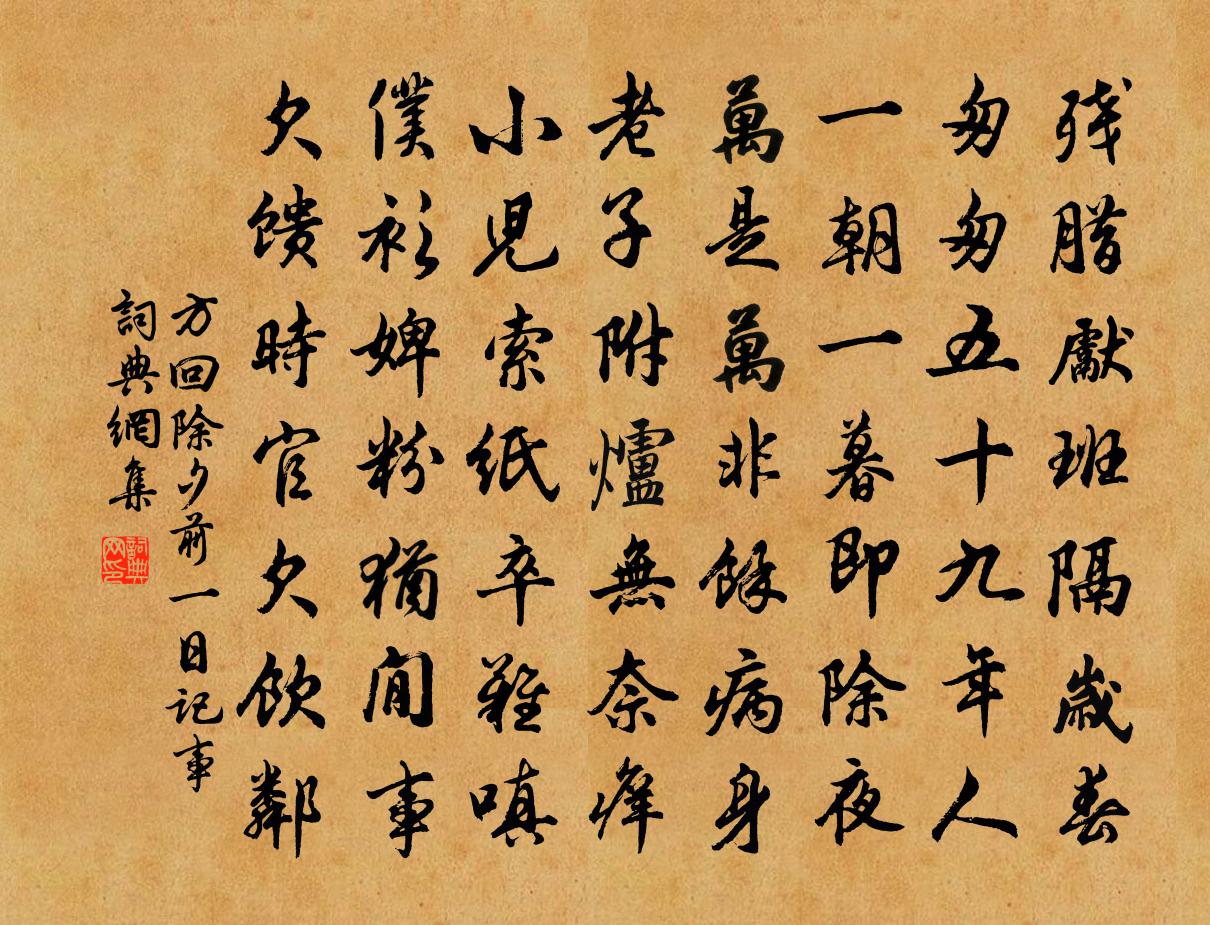 残腊獻班隔歲春
匆匆五十九年人
一朝一暮即除夜
萬是萬非餘病身
老子附爐無奈痒
小児索紙卒難嗔
僕衫婢粉猶閒事
欠馈時官欠飲鄰
方回除夕前一日記事
詞典網集
詞典网印